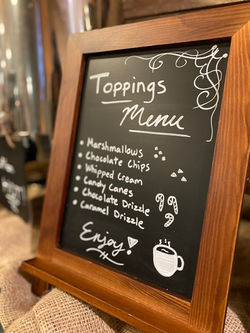 Toppings
Menu
• Marshmallows
• Chocolate Chips
• Whipped Cream
• Candy Canes
• Chocolate Drizzle
• Caramel Drizzle
Enjoy!